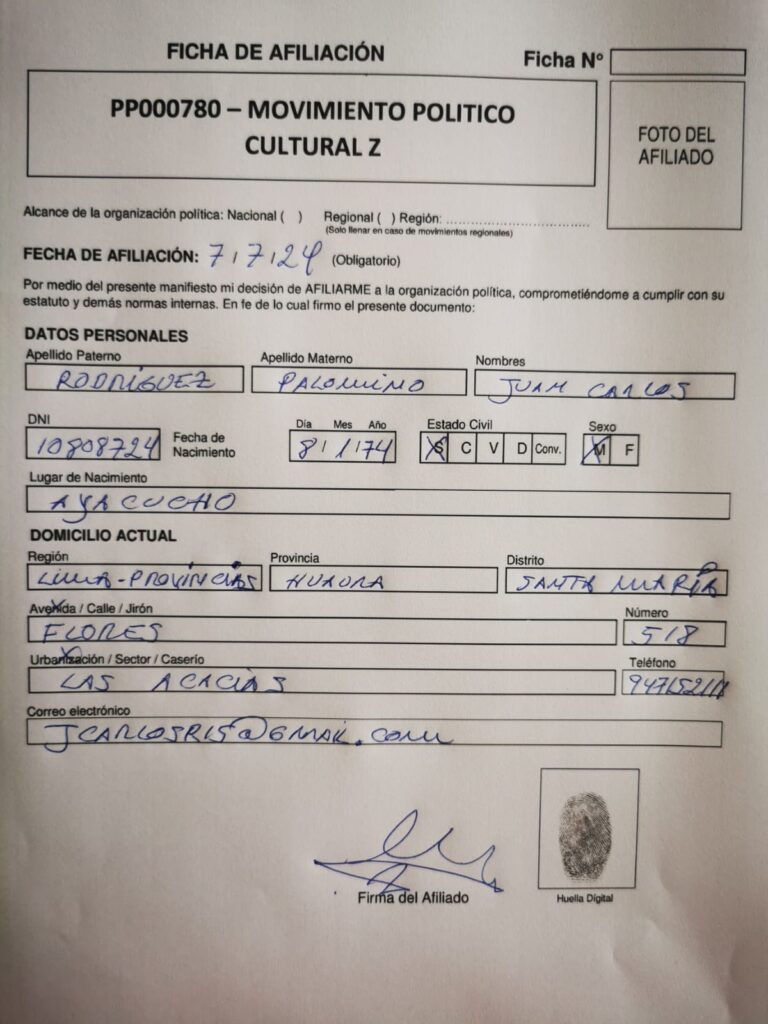 FICHA DE AFILIACIÓN
Ficha Nº
PP000780 – MOVIMIENTO POLITICO
CULTURAL Z
FOTO DEL
AFILIADO
Alcance de la organización política: Nacional ( ) Regional ( ) Región: ....................................
(Solo llenar en caso de movimientos regionales)
FECHA DE AFILIACIÓN: 7/7/24 (Obligatorio)
Por medio del presente manifiesto mi decisión de AFILIARME a la organización política, comprometiéndome a cumplir con su
estatuto y demás normas internas. En fe de lo cual firmo el presente documento:
DATOS PERSONALES
Apellido Paterno Apellido Materno Nombres
RODRÍGUEZ PALOMINO JUAN CARLOS
DNI Día Mes Año Estado Civil Sexo
10808724 Fecha de Nacimiento 8/1/74 S C V D Conv. M F
Lugar de Nacimiento
AYACUCHO
DOMICILIO ACTUAL
Región Provincia Distrito
LIMA-PROVINCIAS HUAURA SANTA MARÍA
Avenida / Calle / Jirón Número
FLORES 518
Urbanización / Sector / Caserío Teléfono
LAS ACACIAS
Correo electrónico
JCARLOSR15@GMAIL.COM
Firma del Afiliado
Huella Digital